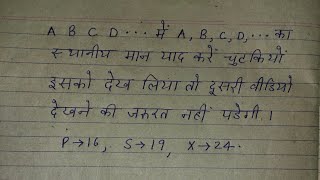 A B C D .... में A, B, C, D, ... का
स्थानीय मान याद करें चुटकियों
इसको देख लिया तो दूसरी वीडियो
देखने की जरूरत नहीं पडेगी।
P→16, S→19, X→24.